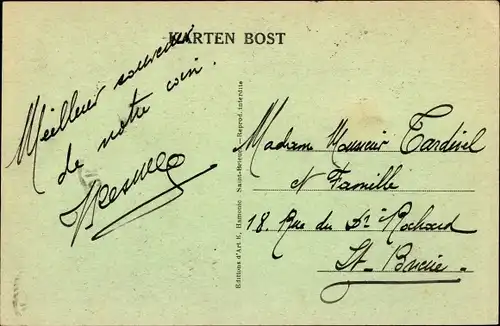 KARTEN BOST
Meilleur souvenir
de notre coin.
Madame Monsieur Tardivel
et Famille
18. Rue du Dr Rochard
St-Brieuc
Editions d'Art E. Hamonic Saint-Brieuc — Reprod. interdite